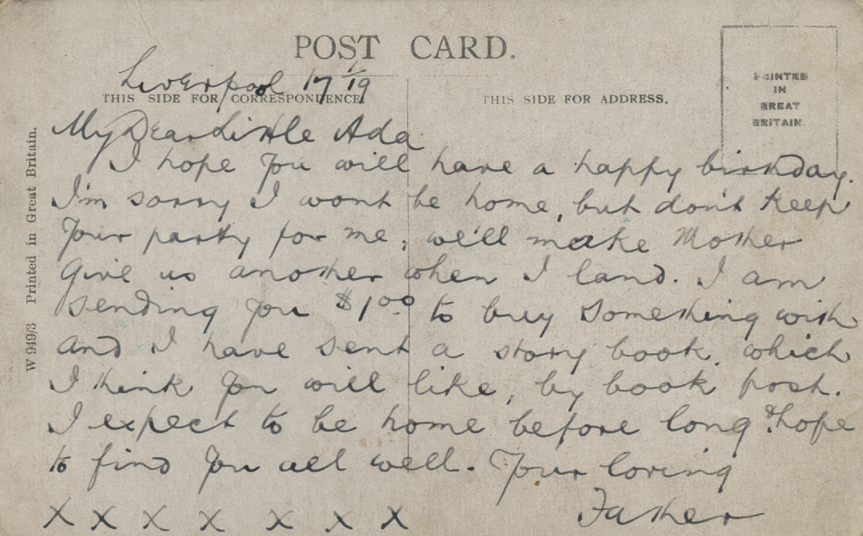 POST CARD.
Liverpool 17/1/19
THIS SIDE FOR CORRESPONDENCE.
THIS SIDE FOR ADDRESS.
PRINTED
IN
GREAT
BRITAIN.
W 949/3 Printed in Great Britain.
My Dear Little Ada
I hope you will have a happy birthday.
I'm sorry I wont be home, but don't keep
your party for me, we'll make Mother
give us another when I land. I am
sending you $1.00 to buy something with
and I have sent a story book, which
I think you will like, by book post.
I expect to be home before long & hope
to find you all well. Your loving
Father
X X X X X X X